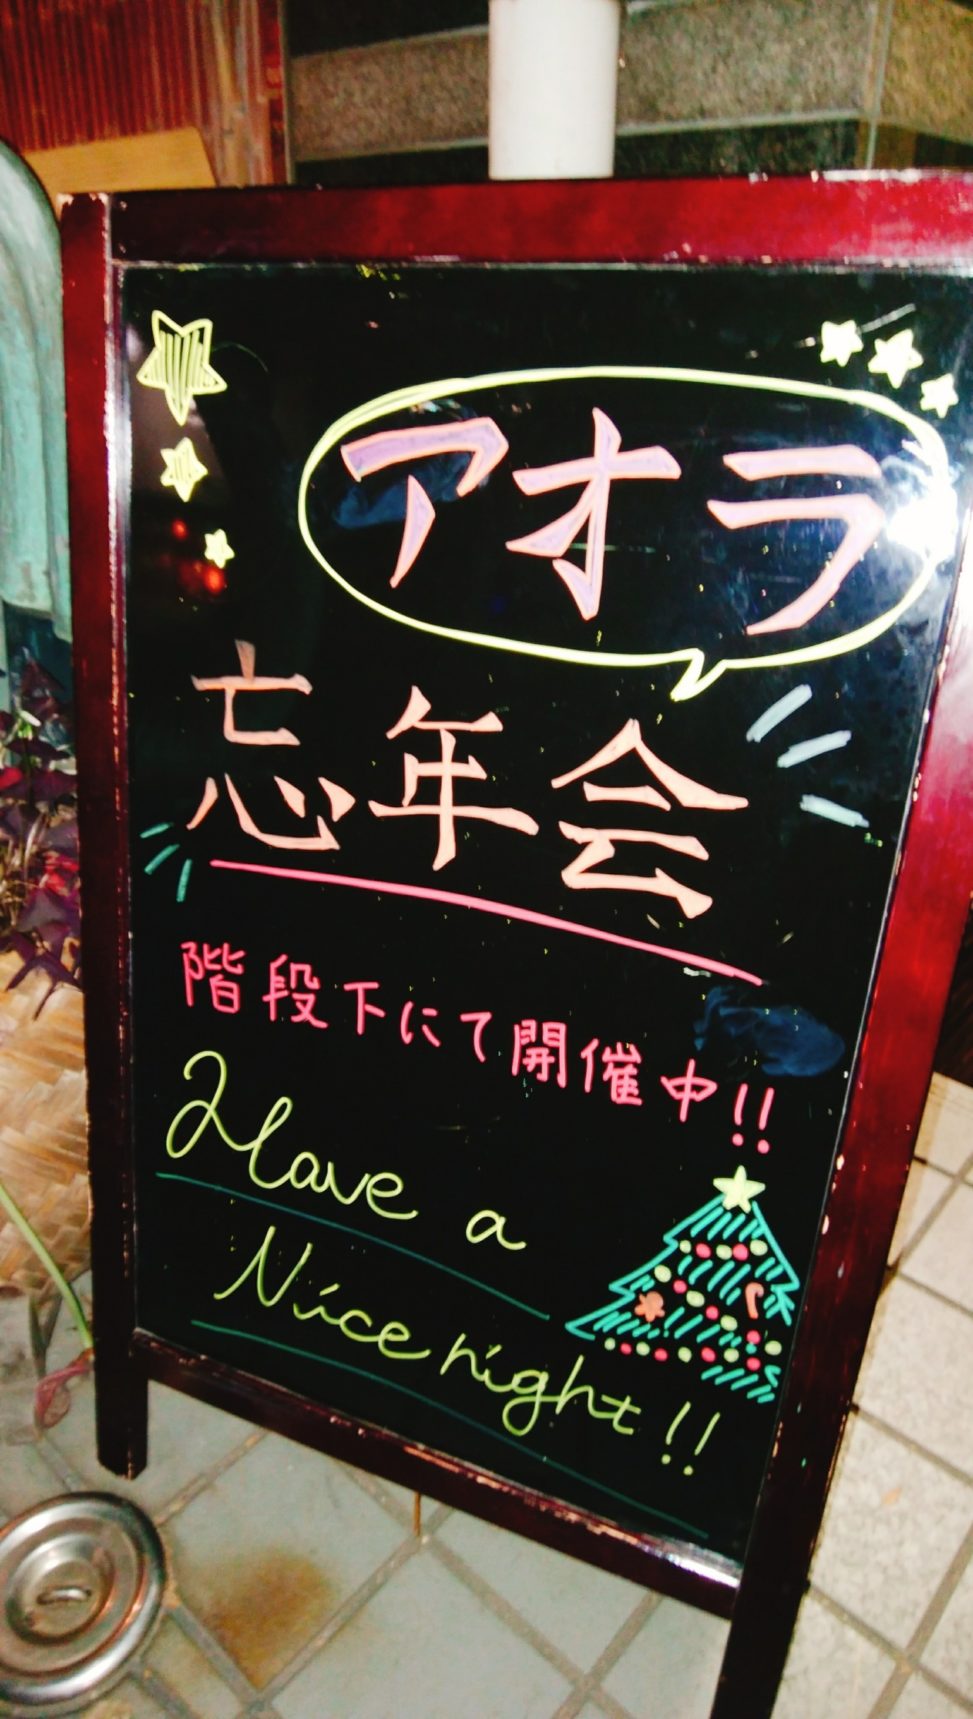 アオラ
忘年会
階段下にて開催中!!
Have a
Nice night!!